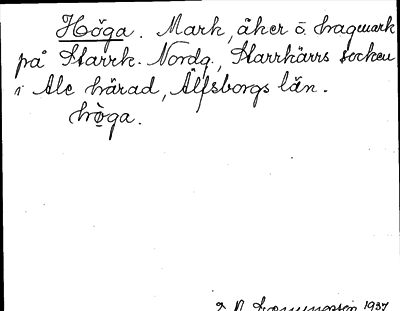 Höga. Mark, åker o. hagmark
på Starrk. Nordg., Starrkärrs socken
i Ale härad, Älfsborgs län.
hò̤ga.
1937